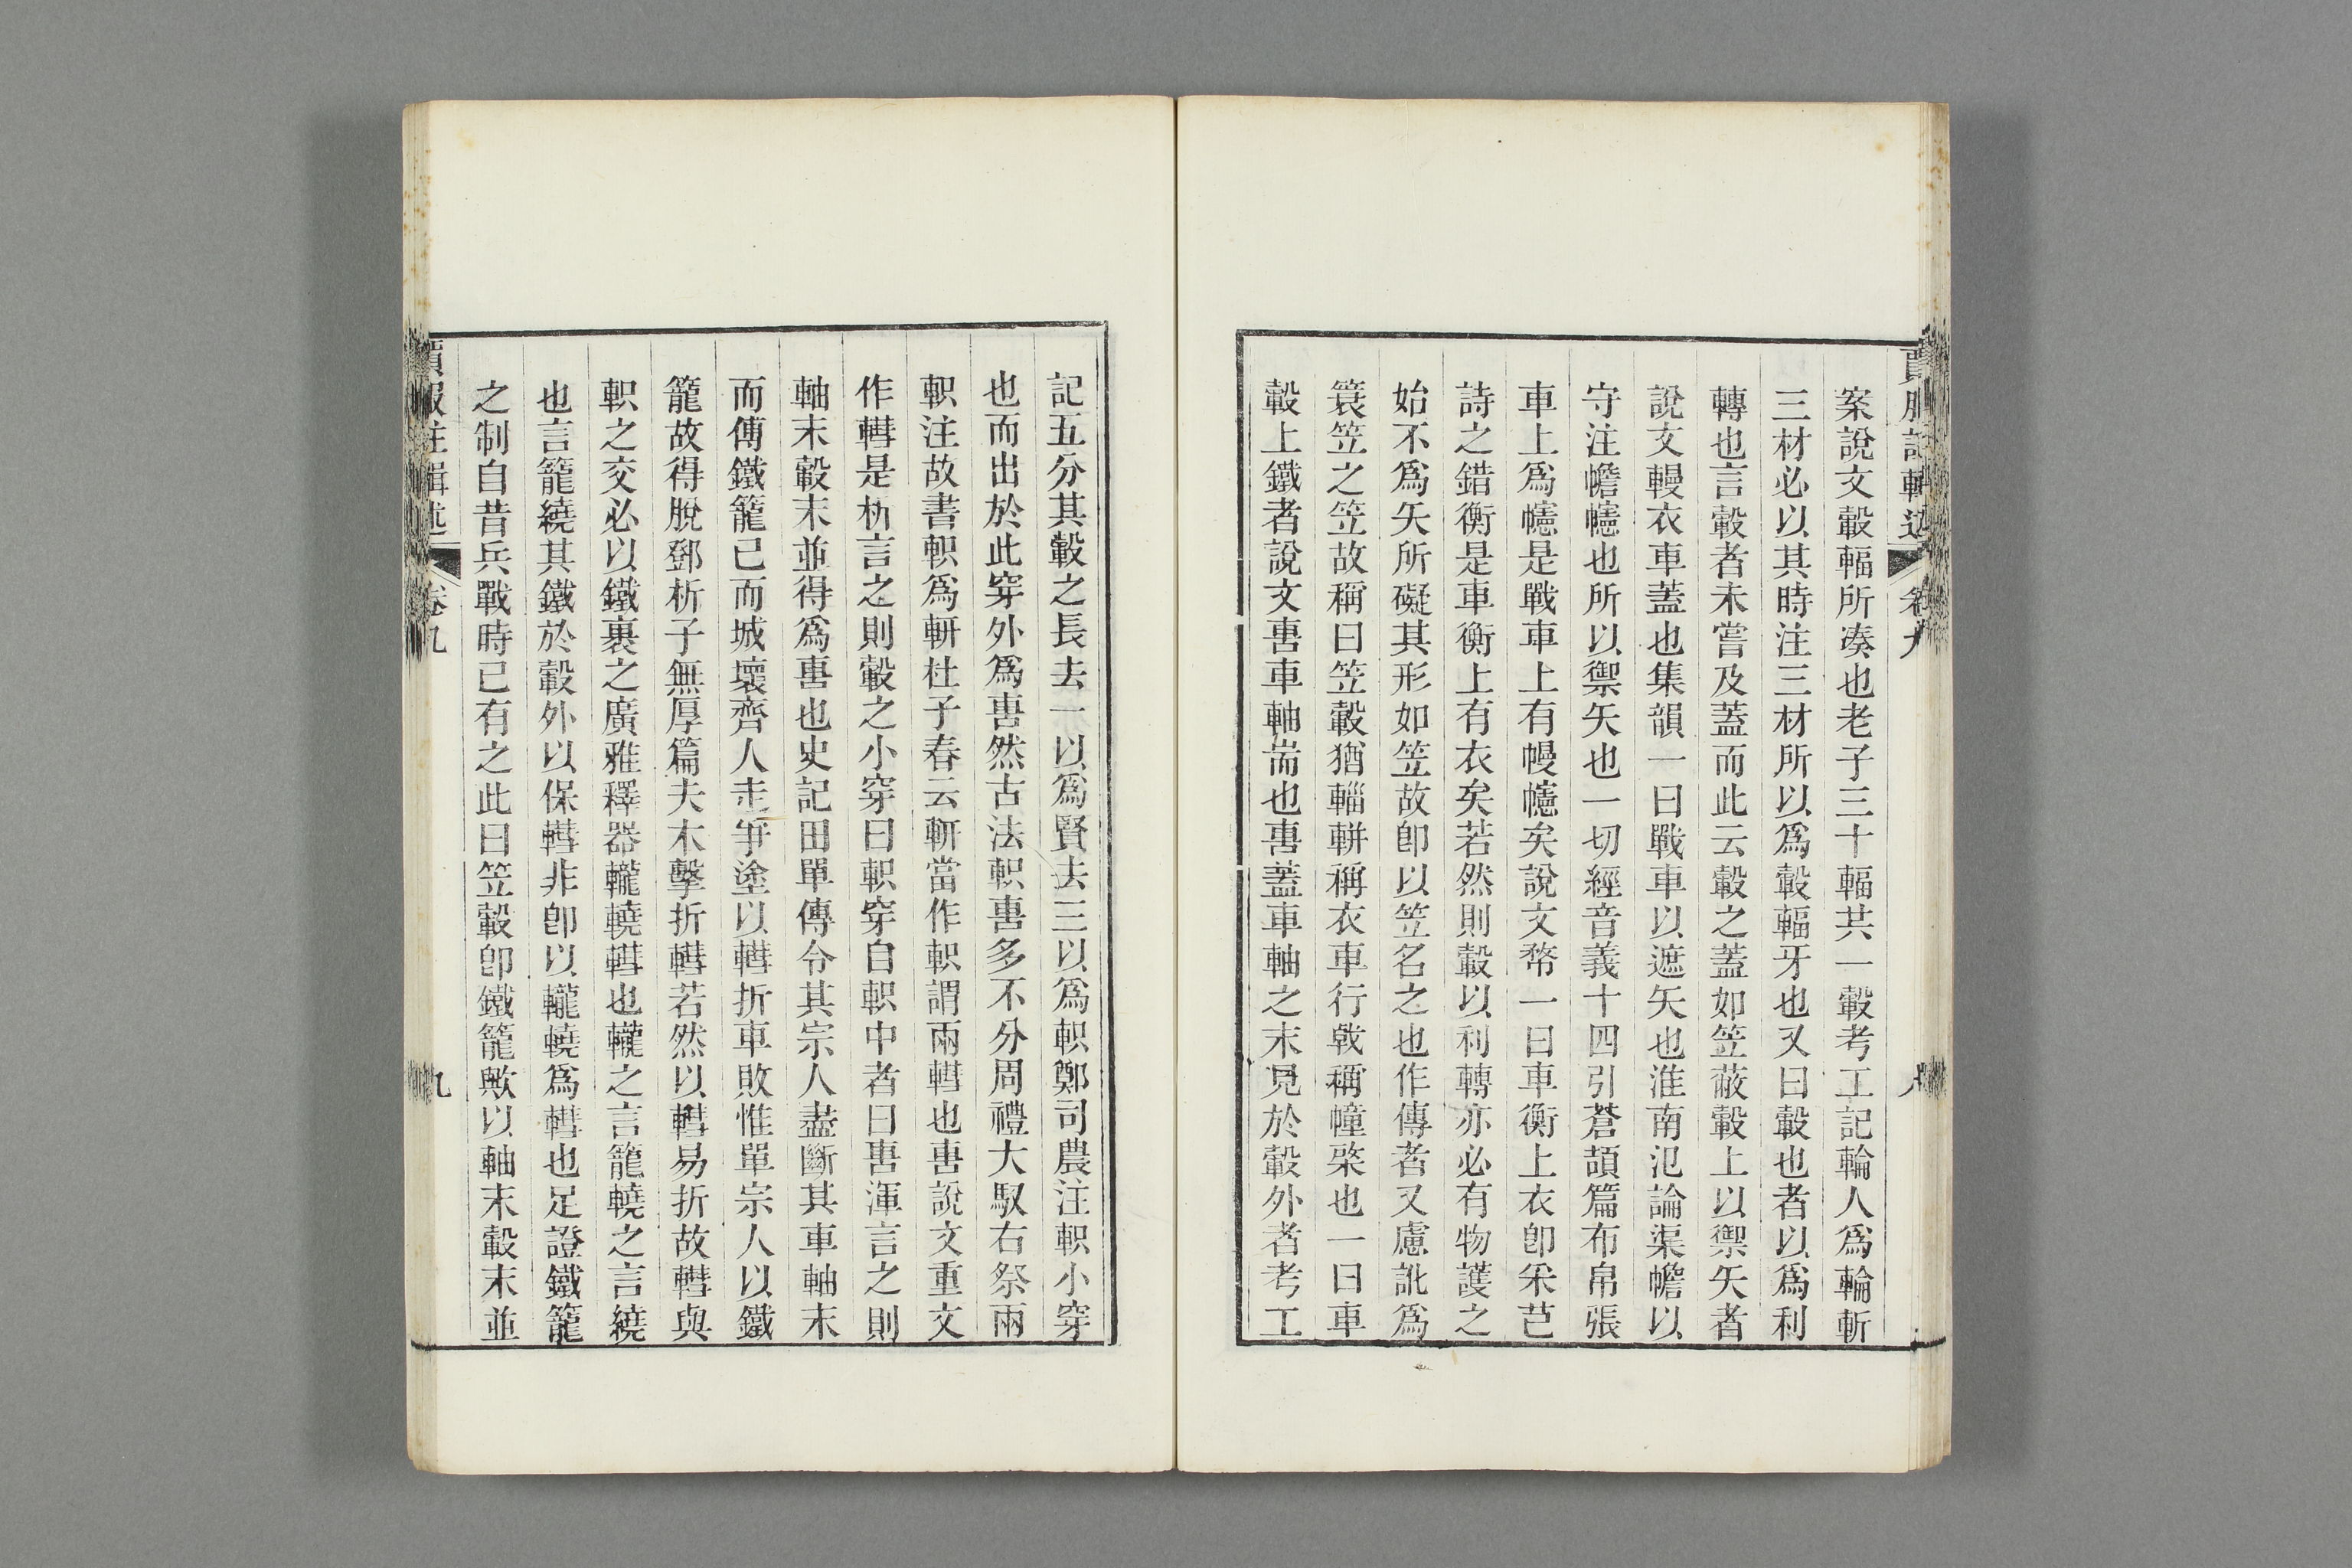 賈服註輯述 卷九 八
案說文轂輻所湊也老子三十輻共一轂考工記輪人爲輪斬
三材必以其時注三材所以爲轂輻牙也又曰轂也者以爲利
轉也言轂者未嘗及蓋而此云轂之蓋如笠蔽轂上以禦矢者
說文轈衣車蓋也集韻一曰戰車以遮矢也淮南氾論渠幨以
守注幨幰也所以禦矢也一切經音義十四引蒼頡篇布帛張
車上爲幰是戰車上有幔幰矣說文幦一曰車衡上衣卽采芑
詩之錯衡是車衡上有衣矣若然則轂以利轉亦必有物護之
始不爲矢所礙其形如笠故卽以笠名之也作傳者又慮訛爲
簑笠之笠故稱曰笠轂猶輜軿稱衣車行戟稱幢棨也一曰車
轂上鐵者說文軎車軸耑也軎蓋車軸之末見於轂外者考工
記五分其轂之長去一以爲賢去三以爲軹鄭司農注軹小穿
也而出於此穿外爲軎然古法軹軎多不分周禮大馭右祭兩
軹注故書軹爲軿杜子春云軿當作軹謂兩轊也軎說文重文
作轊是析言之則轂之小穿曰軹穿自軹中者曰軎渾言之則
軸末轂末並得爲軎也史記田單傳令其宗人盡斷其車軸末
而傅鐵籠已而城壞齊人走爭塗以轊折車敗惟單宗人以鐵
籠故得脫鄧析子無厚篇夫木擊折轊若然以轊易折故轊與
軹之交必以鐵裹之廣雅釋器轣轆轊也轣之言籠轆之言繞
也言籠繞其鐵於轂外以保轊非卽以轣轆爲轊也足證鐵籠
之制自昔兵戰時已有之此曰笠轂卽鐵籠歟以軸末轂末並
賈服註輯述 卷九 九